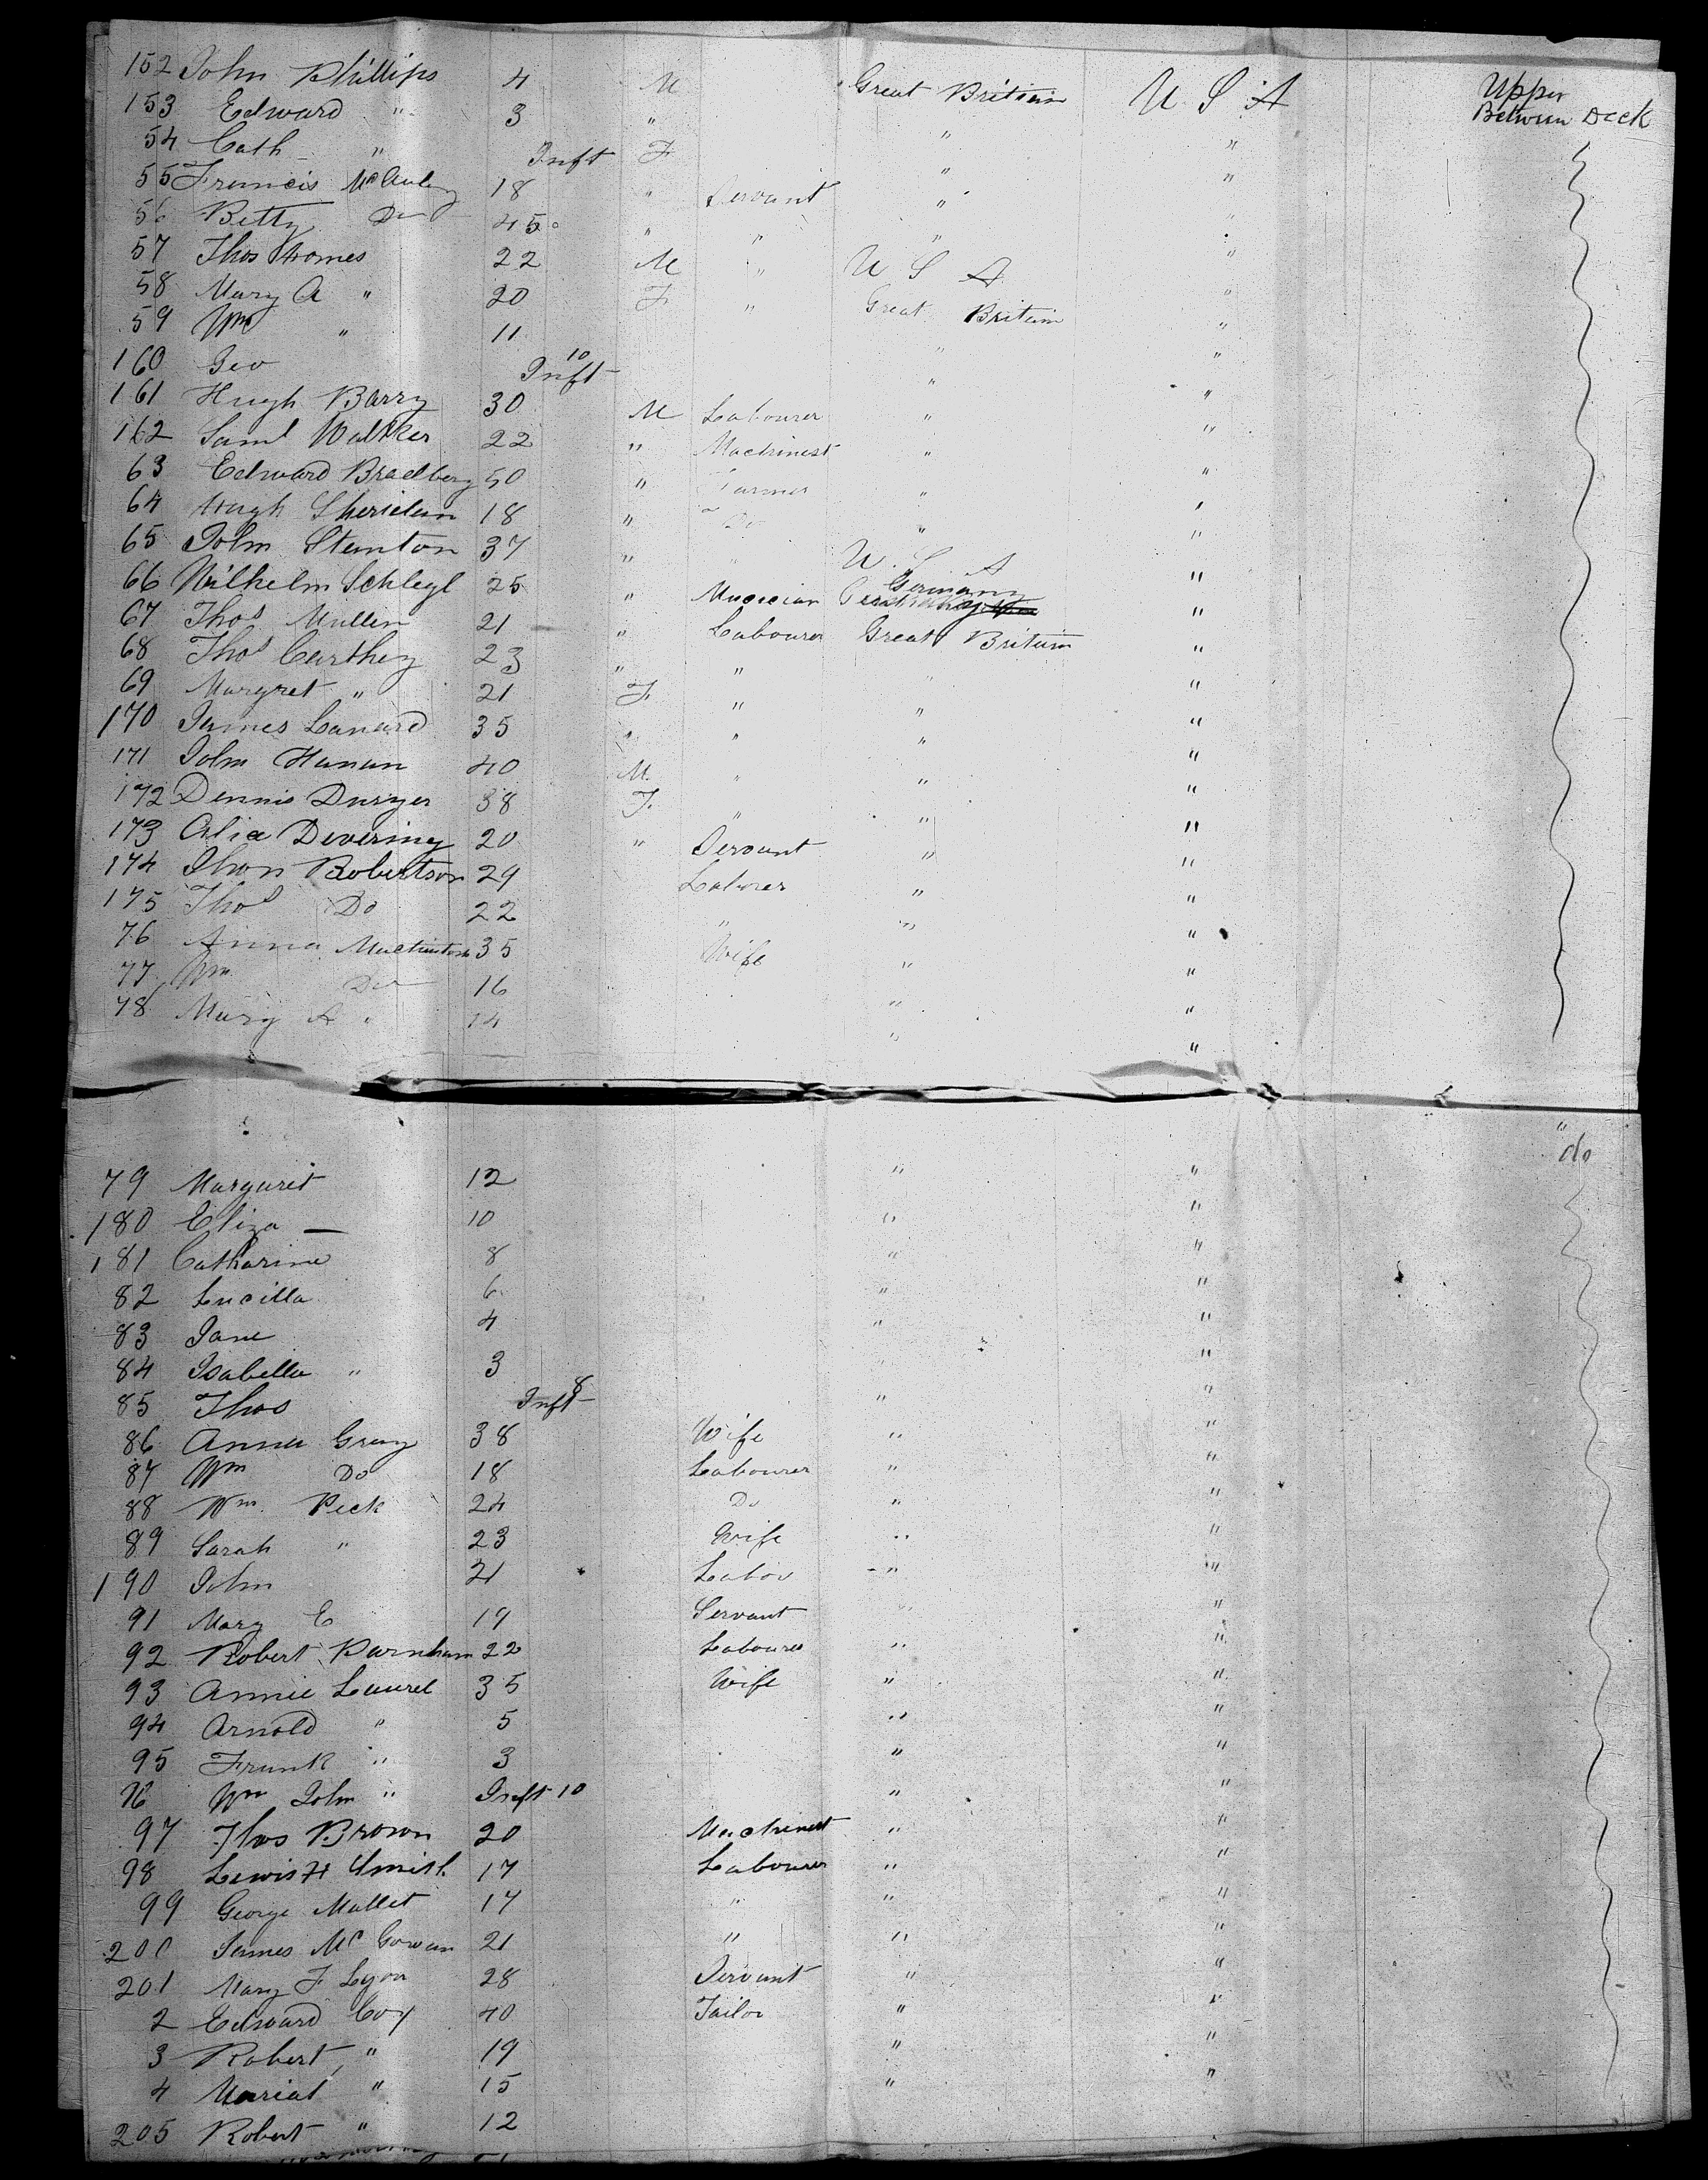 152 John Phillips 4 M Great Britain U S A Upper Between Deck
153 Edward " 3 " " "
54 Cath " Inft F " "
55 Francis McAuley 18 " Servant " "
56 Betty Do 45 " " " "
57 Thos Homes 22 M " U S A "
58 Mary A " 20 F " Great Britain "
59 Wm " 11 " "
160 Geo Inft 10 " "
161 Hugh Barry 30 M Labourer " "
162 Saml Walker 22 " Machinest " "
63 Edward Bradbery 50 " Farmer " "
64 Hugh Sheridan 18 " Do " "
65 John Stanton 37 " " U. S. A "
66 Wilhelm Schlegl 25 " Musician Germany "
67 Thos Mullen 21 " Labourer Great Britain "
68 Thos Carthey 23 " " " "
69 Margret " 21 F " " "
170 James Lanard 35 " " " "
171 John Hanan 40 M. " " "
172 Dennis Dwyer 38 F. " " "
173 Alia Devering 20 " Servant " "
174 Jhon Robertson 29 Laborer " "
175 Thos Do 22 " " "
76 Anna Machintosh 35 Wife " "
77 Wm Do 16 " "
78 Mary A " 14 " "
79 Margaret 12 " " " do
180 Eliza — 10 " "
181 Catharine 8 " "
82 Lucilla 6 " "
83 Jane 4 " "
84 Isabella " 3 " "
85 Thos Inft 8 " "
86 Anna Gray 38 Wife " "
87 Wm Do 18 Labourer " "
88 Wm. Peck 24 Do " "
89 Sarah " 23 Wife " "
190 John 21 Labor " "
91 Mary E 19 Servant " "
92 Robert Parnham 22 Labourer " "
93 Annie Laurel 35 Wife " "
94 Arnold " 5 " "
95 Frank " 3 " "
96 Wm John " Inft 10 " "
97 Thos Brown 20 Machinest " "
98 Lewis H Smith 17 Labourer " "
99 George Mallet 17 " " "
200 James McGowan 21 " " "
201 Mary F Lyon 28 Servant " "
2 Edward Coy 40 Tailor " "
3 Robert " 19 " "
4 Mariat " 15 " "
205 Robert " 12